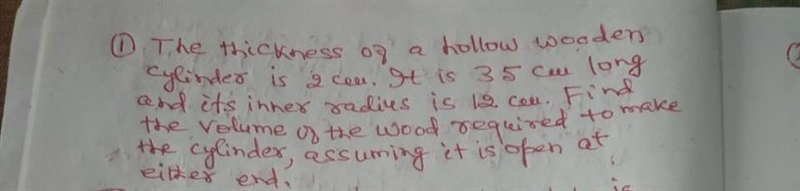 ① The thickness of a hollow wooden
cylinder is 2 cm. It is 35 cm long
and its inner radius is 12 cm. Find
the volume of the wood required to make
the cylinder, assuming it is open at
either end.